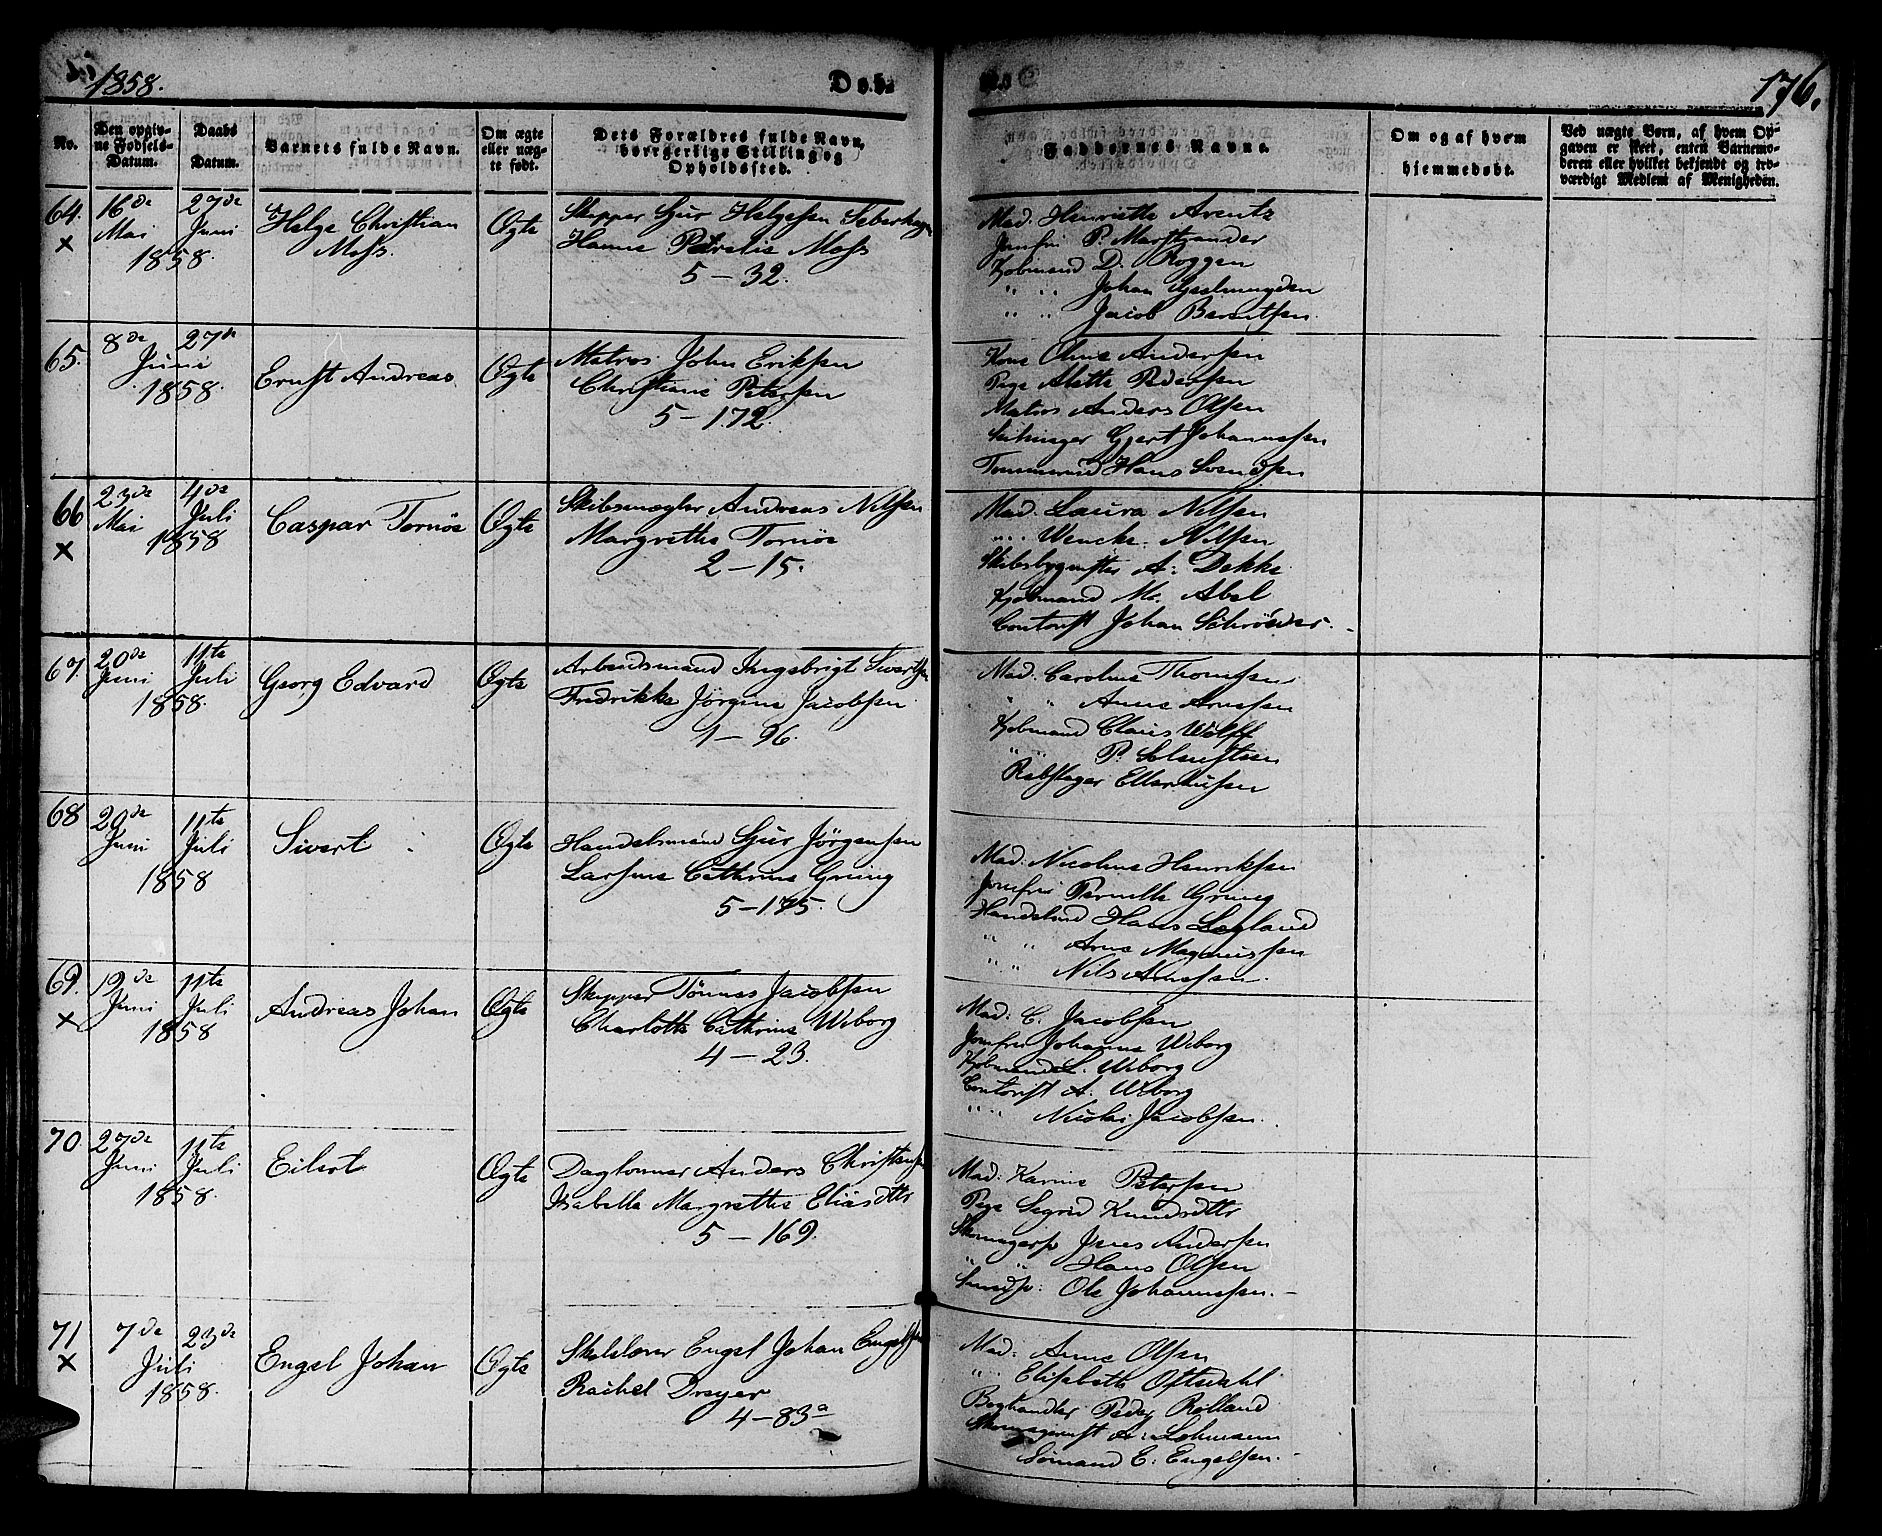 1858.
Døbe
176.
No.
Den opgiv-
ne Fødsels-
Datum.
Daabs
Datum.
Barnets fulde Navn.
Om ægte
eller uæg-
te født.
Dets Forældres fulde Navn,
borgerlige Stilling og
Opholdssted.
Faddernes Navne.
Om og af hvem
hjemmedøbt.
Ved uægte Børn, af hvem Op-
gaven er skeet, enten Barnemo-
deren eller hvilket bekjendt og tro-
værdigt Medlem af Menigheden.
64. × 16de Mai 27de Juni 1858.
Helge Christian
Moss.
Ægte
Skipper Sjur Helgesen
Hanne Petralie Moss
5-32.
Mad. Henriette Arentz
Jomfru P. Marstrander
Kjøbmand D. Roggen
" " Johan Geelmuyden
" " Jacob Berentsen.
65. 8de 27de Juni 1858.
Ernst Andreas
Ægte
Matros John Eriksen
Christiane Petersen
5-172.
Kone Andersen
Pige Alette Pedersen
Matros Anders Olsen
Gjert Johannessen
Tømmermd Hans Svendsen
66 × 23de Mai 4de Juli 1858
Caspar Tornøe
Ægte
Skibsmægler Andreas Nilsen
Margrethe Tornøe
2-15.
Mad. Laura Nilsen
" Wencke Nilsen
Skibsbygmester A: Dekke
Kjøbmand M. Abel
Contorist Johan Schröeder.
67. 20de Juni 11te Juli 1858.
Georg Edvard
Ægte
Arbeidsmand Ingebrigt Sivertsen
Fredrikke Jørgine Jacobsen
1-96.
Mad. Caroline Thomsen
" " Anne Arnesen
Kjøbmand Claus Wolff
" " P.
Rebslager Ellerhusen
68 20de Juni 11te Juli 1858
Sivert
Ægte
Handelsmand Sjur Jörgensen
Larsine Cathrine Grung
5-175.
Mad. Nicoline Henriksen
Jomfru Pernille Grung
Handelsmd Hans Løgland
" " Arne Magnussen
" " Nils Arnessen.
69. × 19de Juni 11te Juli 1858
Andreas Johan
Ægte
Skipper Tönnes Jacobsen
Charlotte Cathrine Wiborg
4-23.
Mad: C. Jacobsen
Jomfru Johanne Wiborg
Kjøbmand L. Wiborg
Contorist A. Wiborg
" " Nicolai Jacobsen.
70 27de Juni 11te Juli 1858.
Eilert
Ægte
Daglønner Anders Christensen
Isabella Margrethe Eliasdttr
5-169.
Mad: Karine Petersen
Pige Sigrid Knudsdttr
Skomagersv Jens Andersen
" " Hans Olsen
Smedsv: Ole Johannessen.
71 × 7de 23de Juli 1858.
Engel Johan
Ægte
Skolelærer Engel Johan Engelsen
Rachel Dreyer
4-83a
Mad: Anne Olsen
" Elisabeth Oftedahl
Boghandler Peder Rolland
Skomagermst A: Lohmann
Sømand E. Engelsen.